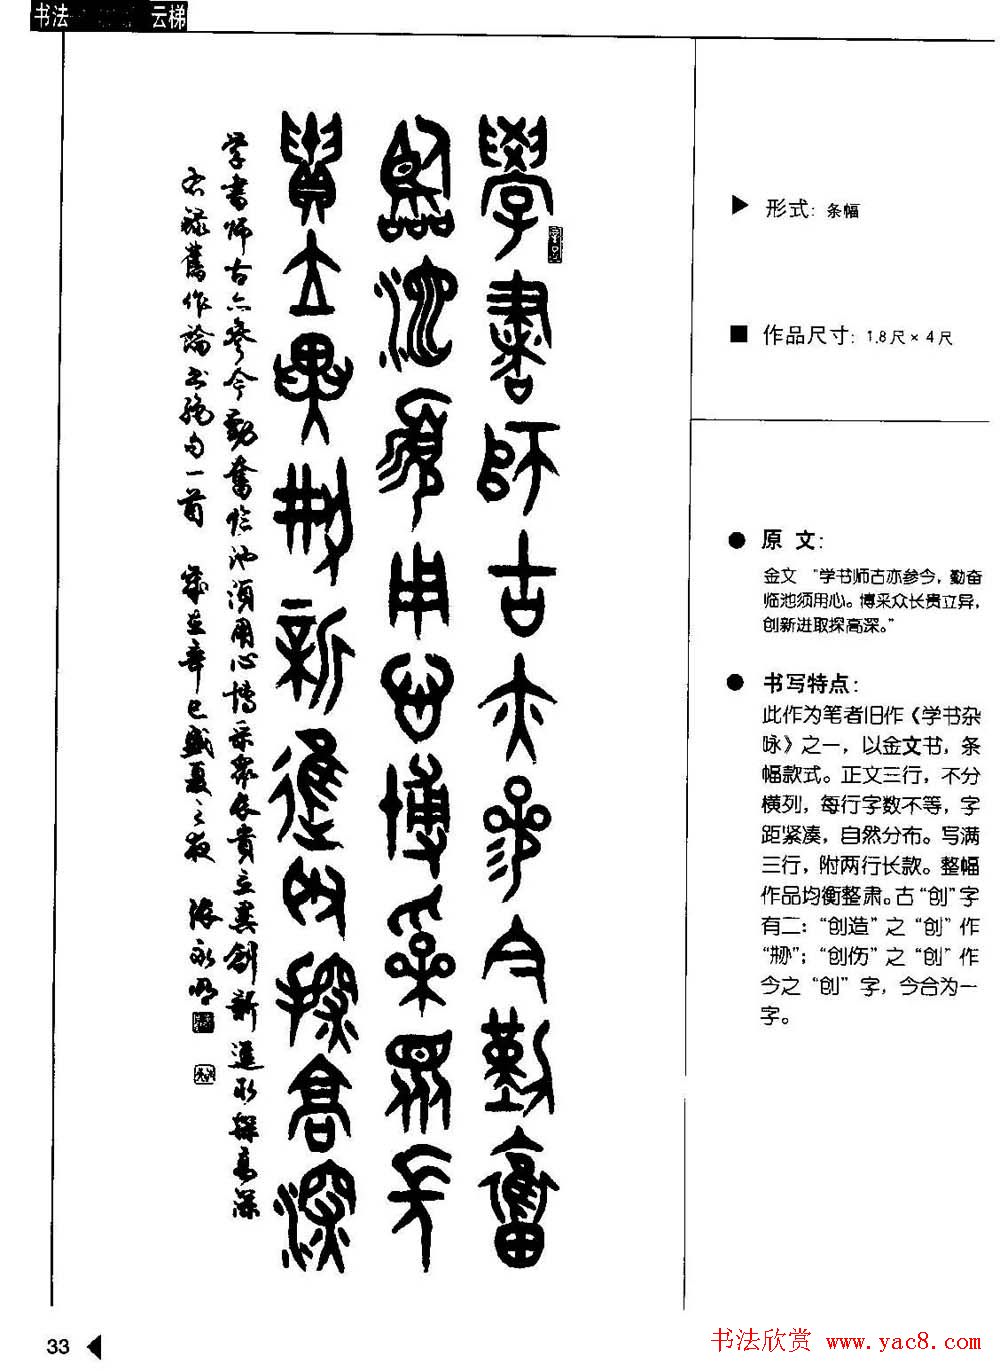 书法
云梯
學書師古亦參今勤奮
臨池須用心博采眾長
貴立異刱新進取探高深
学书师古亦参今勤奮临池須用心博采衆长貴立異創新進取探高深
右録舊作論书绝句一首 歲在辛巳盛夏之夜 張永明
▶ 形式: 条幅
■ 作品尺寸: 1.8尺×4尺
● 原 文:
金文 “学书师古亦参今，勤奋
临池须用心。博采众长贵立异，
创新进取探高深。”
● 书写特点:
此作为笔者旧作《学书杂
咏》之一，以金文书，条
幅款式。正文三行，不分
横列，每行字数不等，字
距紧凑，自然分布。写满
三行，附两行长款。整幅
作品均衡整肃。古“创”字
有二：“创造”之“创”作
“刱”；“创伤”之“创”作
今之“创”字，今合为一
字。
33
书法欣赏 www.yac8.com